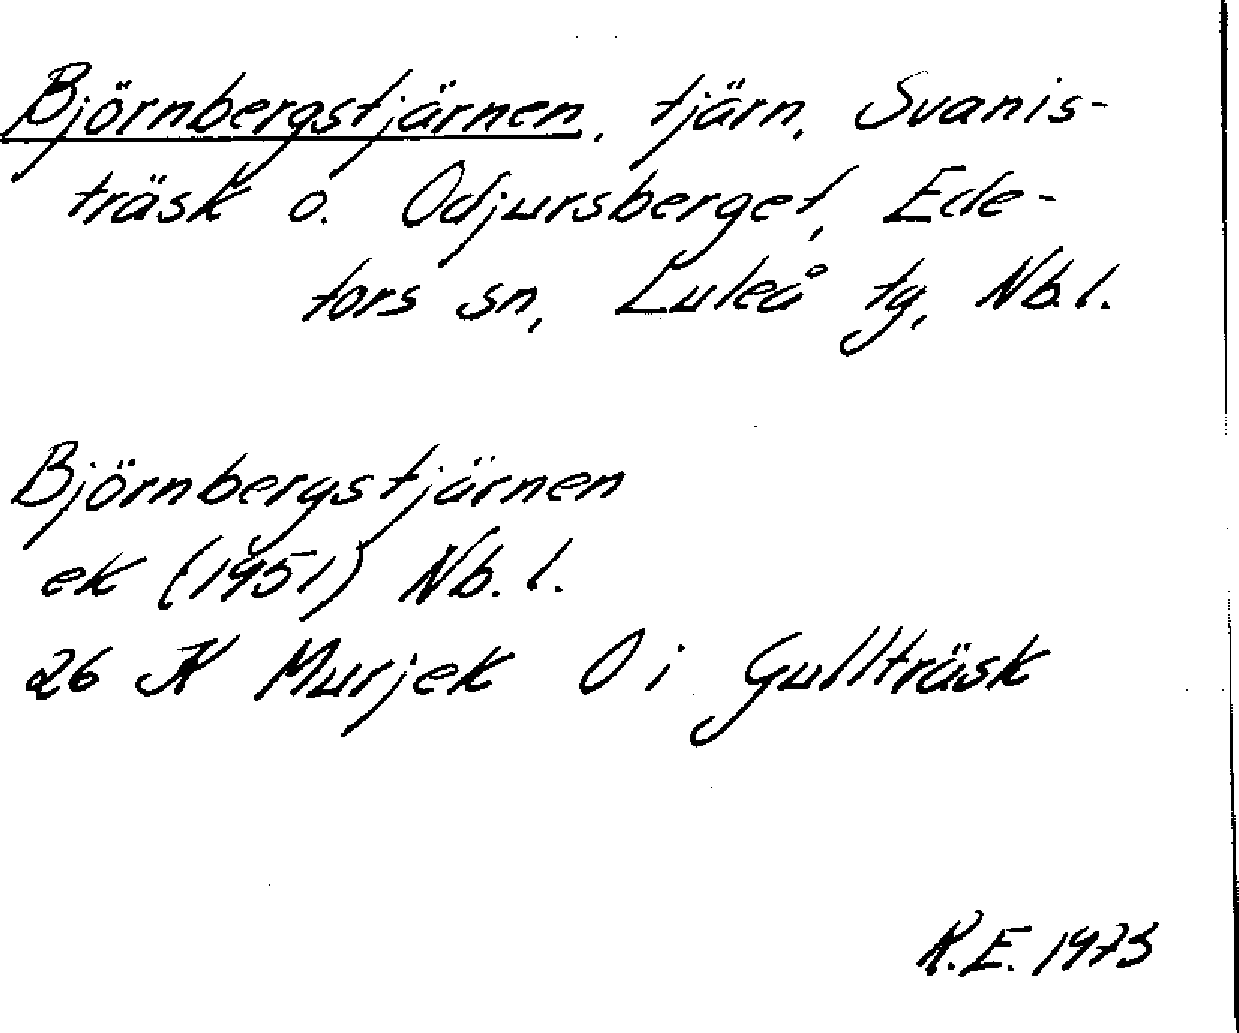 Björnbergstjärnen, tjärn, Svanis-
träsk o. Odjursberget, Ede-
fors sn, Luleå tg, Nb.l.
Björnbergstjärnen
ek (1951) Nb. l.
26 K Murjek O i Gullträsk
K.E. 1973